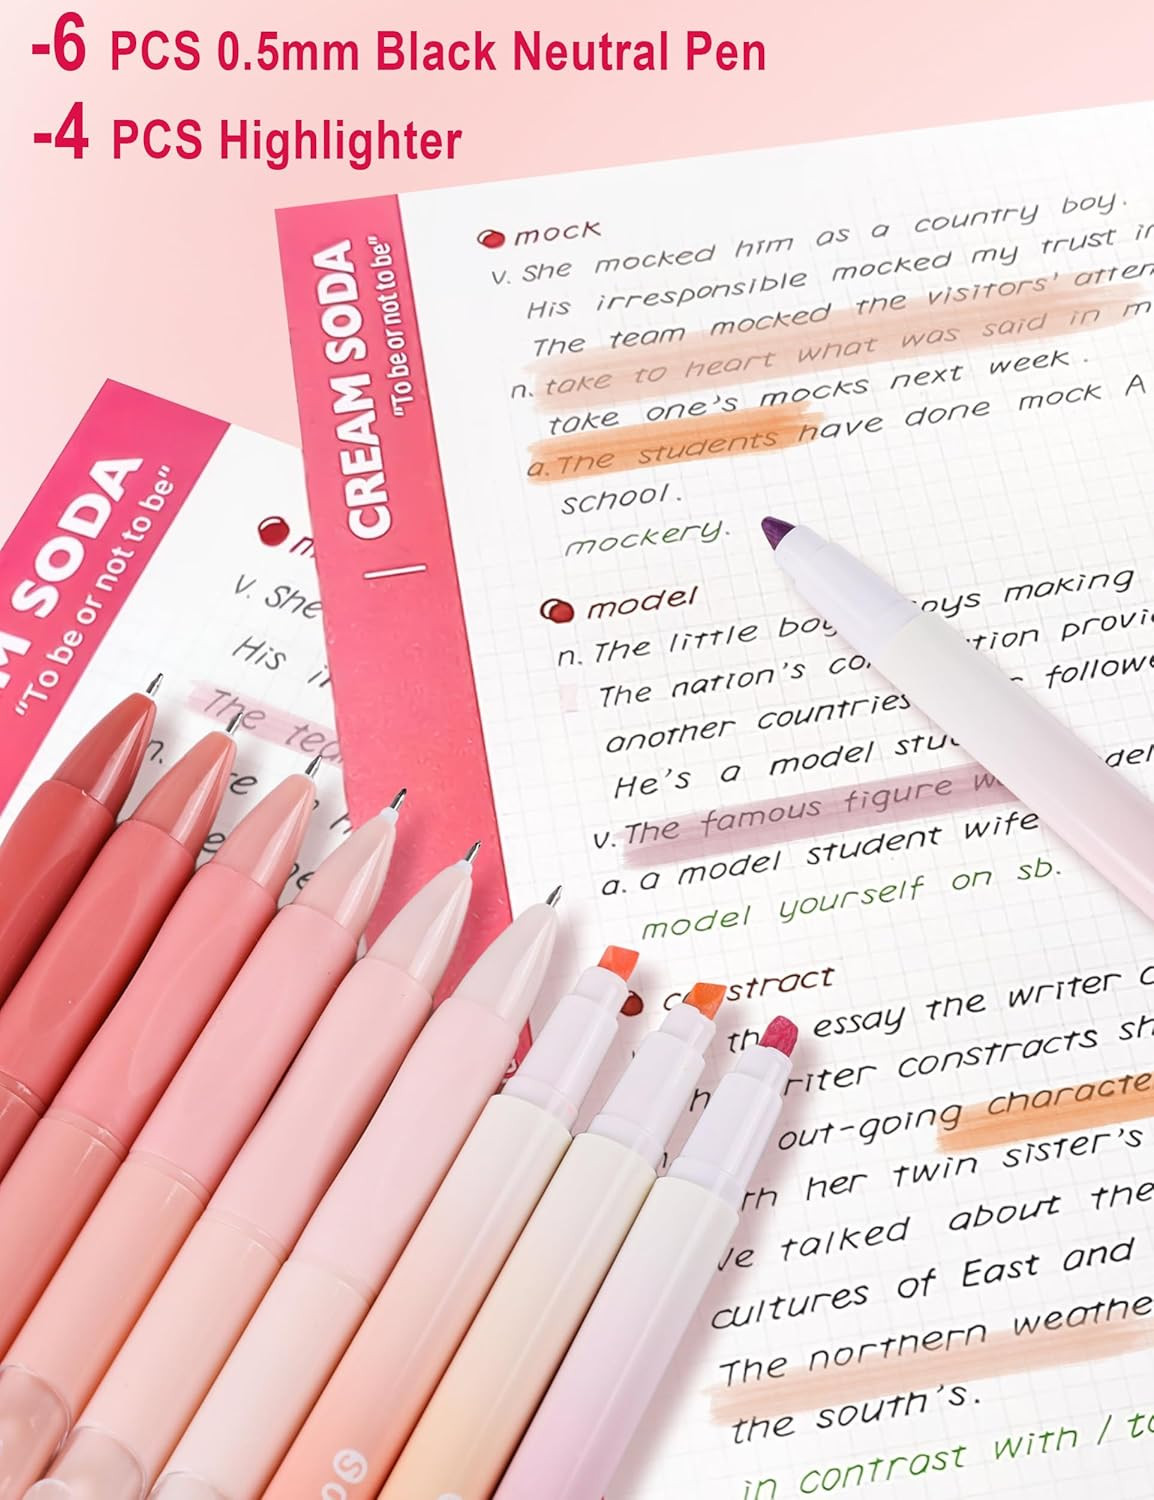 -6 PCS 0.5mm Black Neutral Pen
-4 PCS Highlighter
CREAM SODA
"To be or not to be"
mock
v. She mocked him as a country boy.
His irresponsible mocked my trust in
The team mocked the visitors'
n. take to heart what was said in
take one's mocks next week.
a. The students have done mock A
school.
mockery.
model
n. The little making
The nation's
another countries
He's a model
v. The famous figure
a. a model student wife
model yourself on sb.
essay the writer
constracts
out-going
her twin sister's
talked about the
cultures of East and
The northern
the south's.
in contrast with /
SODA
"To be or not to be"
v. She
His
The